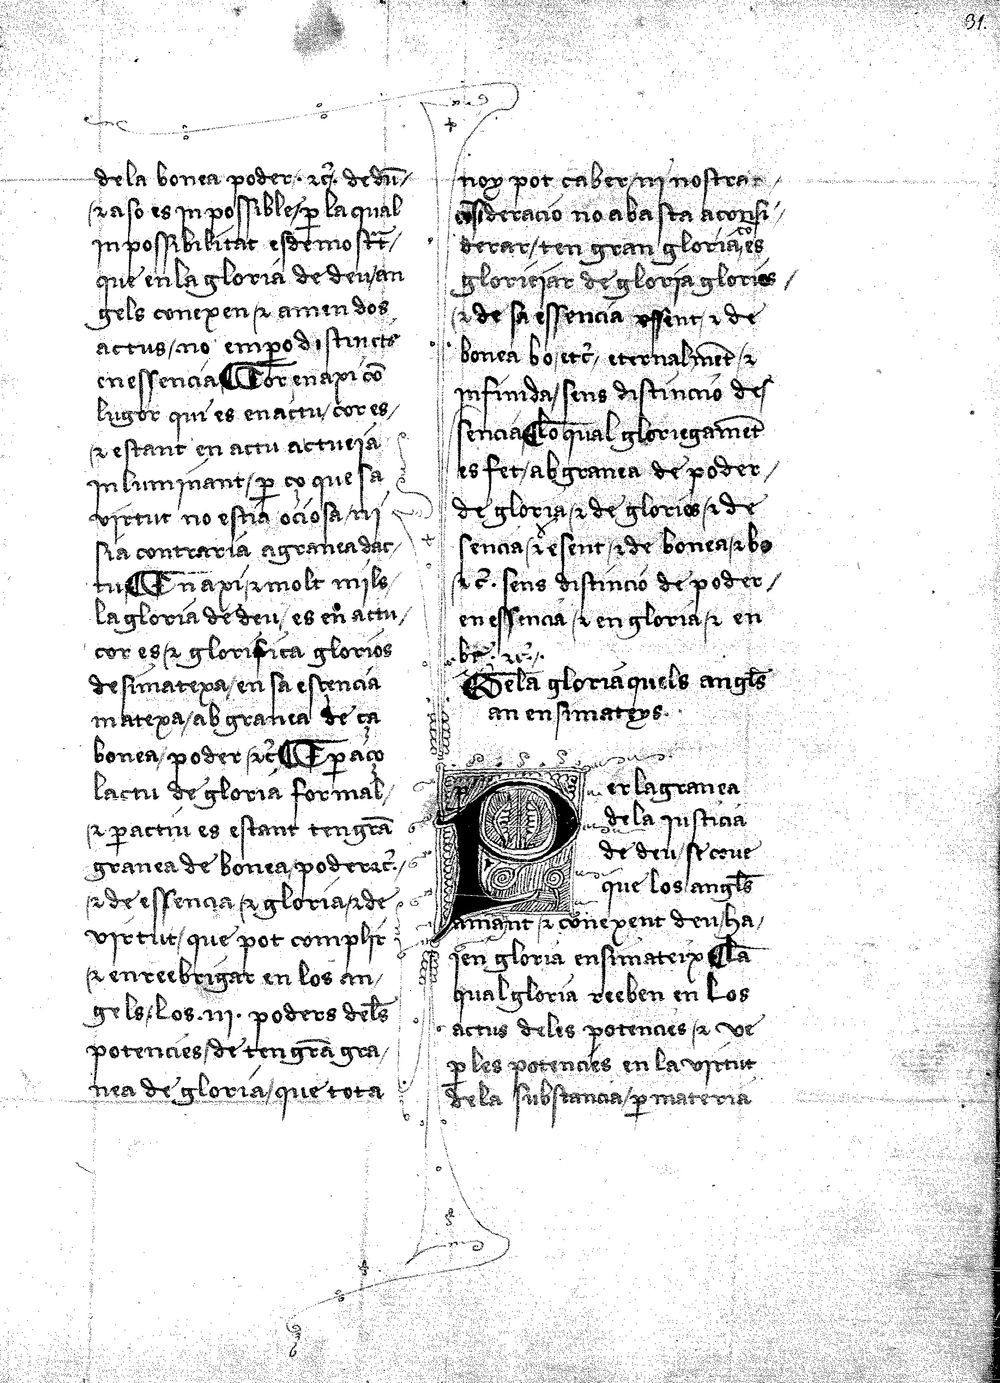 31.
dela bonea poder · ⁊c̃. dedũ/
⁊ aso es jnpossible/ p̲ la qual
jnpossibilitat esdemostrt̃/
que en la gloria de deu/ an
gels conexen ⁊ amen dos
actus/ no empo distincts
en essencia Cor en axi cõ
lugor qui es en actu/ cor es/
⁊ estant en actu actueja
jnluminant/ p̲ ço que sa
virtut no estia ociosa/ ni
sia contraria a granea dac/
tu En axi/ ⁊ molt mjls/
la gloria de deu/ es en actu/
cor es/ ⁊ glorifica glorios
desimatexa/ en sa essencia
matexa/ ab granea de ça
bonea/ poder/ ⁊c̃ E p̲ aço
lactu de gloria formal/
⁊ p̲ actiu es estant ten grã
granea de bonea/ poder ⁊c̃./
⁊ de essencia/ ⁊ gloria/ ⁊ de
virtut/ que pot complir
⁊ enreebrigar en los an/
gels/ Los .iij. poders dels̃
potencies/ de ten grã gra/
nea de gloria/ que tota
noy pot caber/ ni nostra
cõsideracio no abasta aconsi/
derar/ ten gran gloria/ co es
gloriejar de gloria glorios/
⁊ de sa essencia essent/ ⁊ de
bonea bo/ etc̃/ eternalmẽt/ ⁊
jnfinida/ sens distinccio des
sencia Lo qual gloriegamẽt
es fet/ ab granea de poder/
de gloria/ ⁊ de glorios/ ⁊ de
sencia/ ⁊ esent/ ⁊ de bonea/ ⁊ bo
⁊ c̃. sens distincio de poder/
en essencia/ ⁊ en gloria/ ⁊ en
bẽ. ⁊c̃./.
De la gloria quels angl̃s
an en simateys.
Per la granea
de la justicia
de deu/ se coue
que los angl̃s
amant ⁊ conexent deu/ ha/
jen gloria ensimateix La
qual gloria reeben en Los
actus deles potencies/ ⁊ ve
p̲ les potencies en la virtut
dela substancia/ p̲ materia